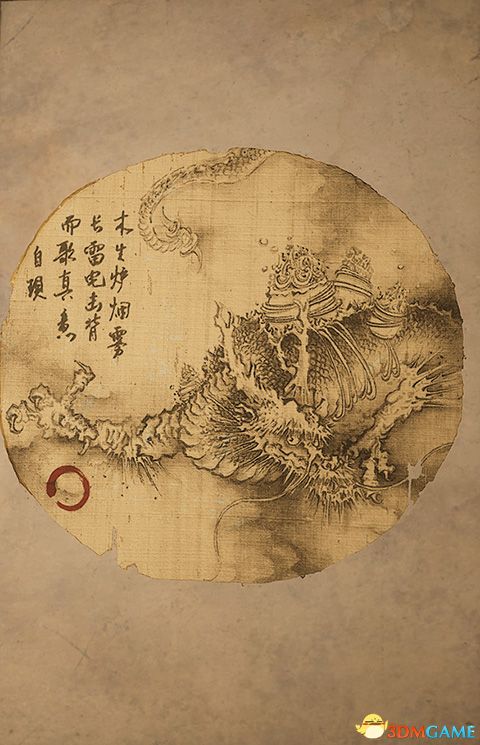 木生炉烟雾
长雷电击背
而歌真意
自现
3DMGAME